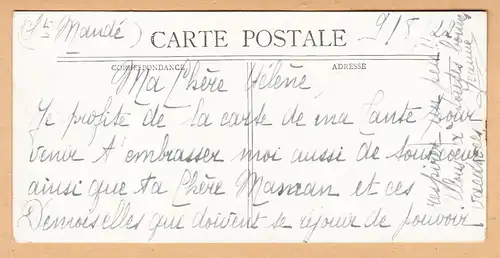 (St Mandé)
CARTE POSTALE
9/8/22
CORRESPONDANCE
ADRESSE
Ma Chère Hélène,
Je profite de la carte de ma tante pour
venir t'embrasser moi aussi de tout cœur
ainsi que ta Chère Maman et ces
Demoiselles qui doivent se réjouir de pouvoir
respirer un peu!!
bonnes
vacances.
Jeanne